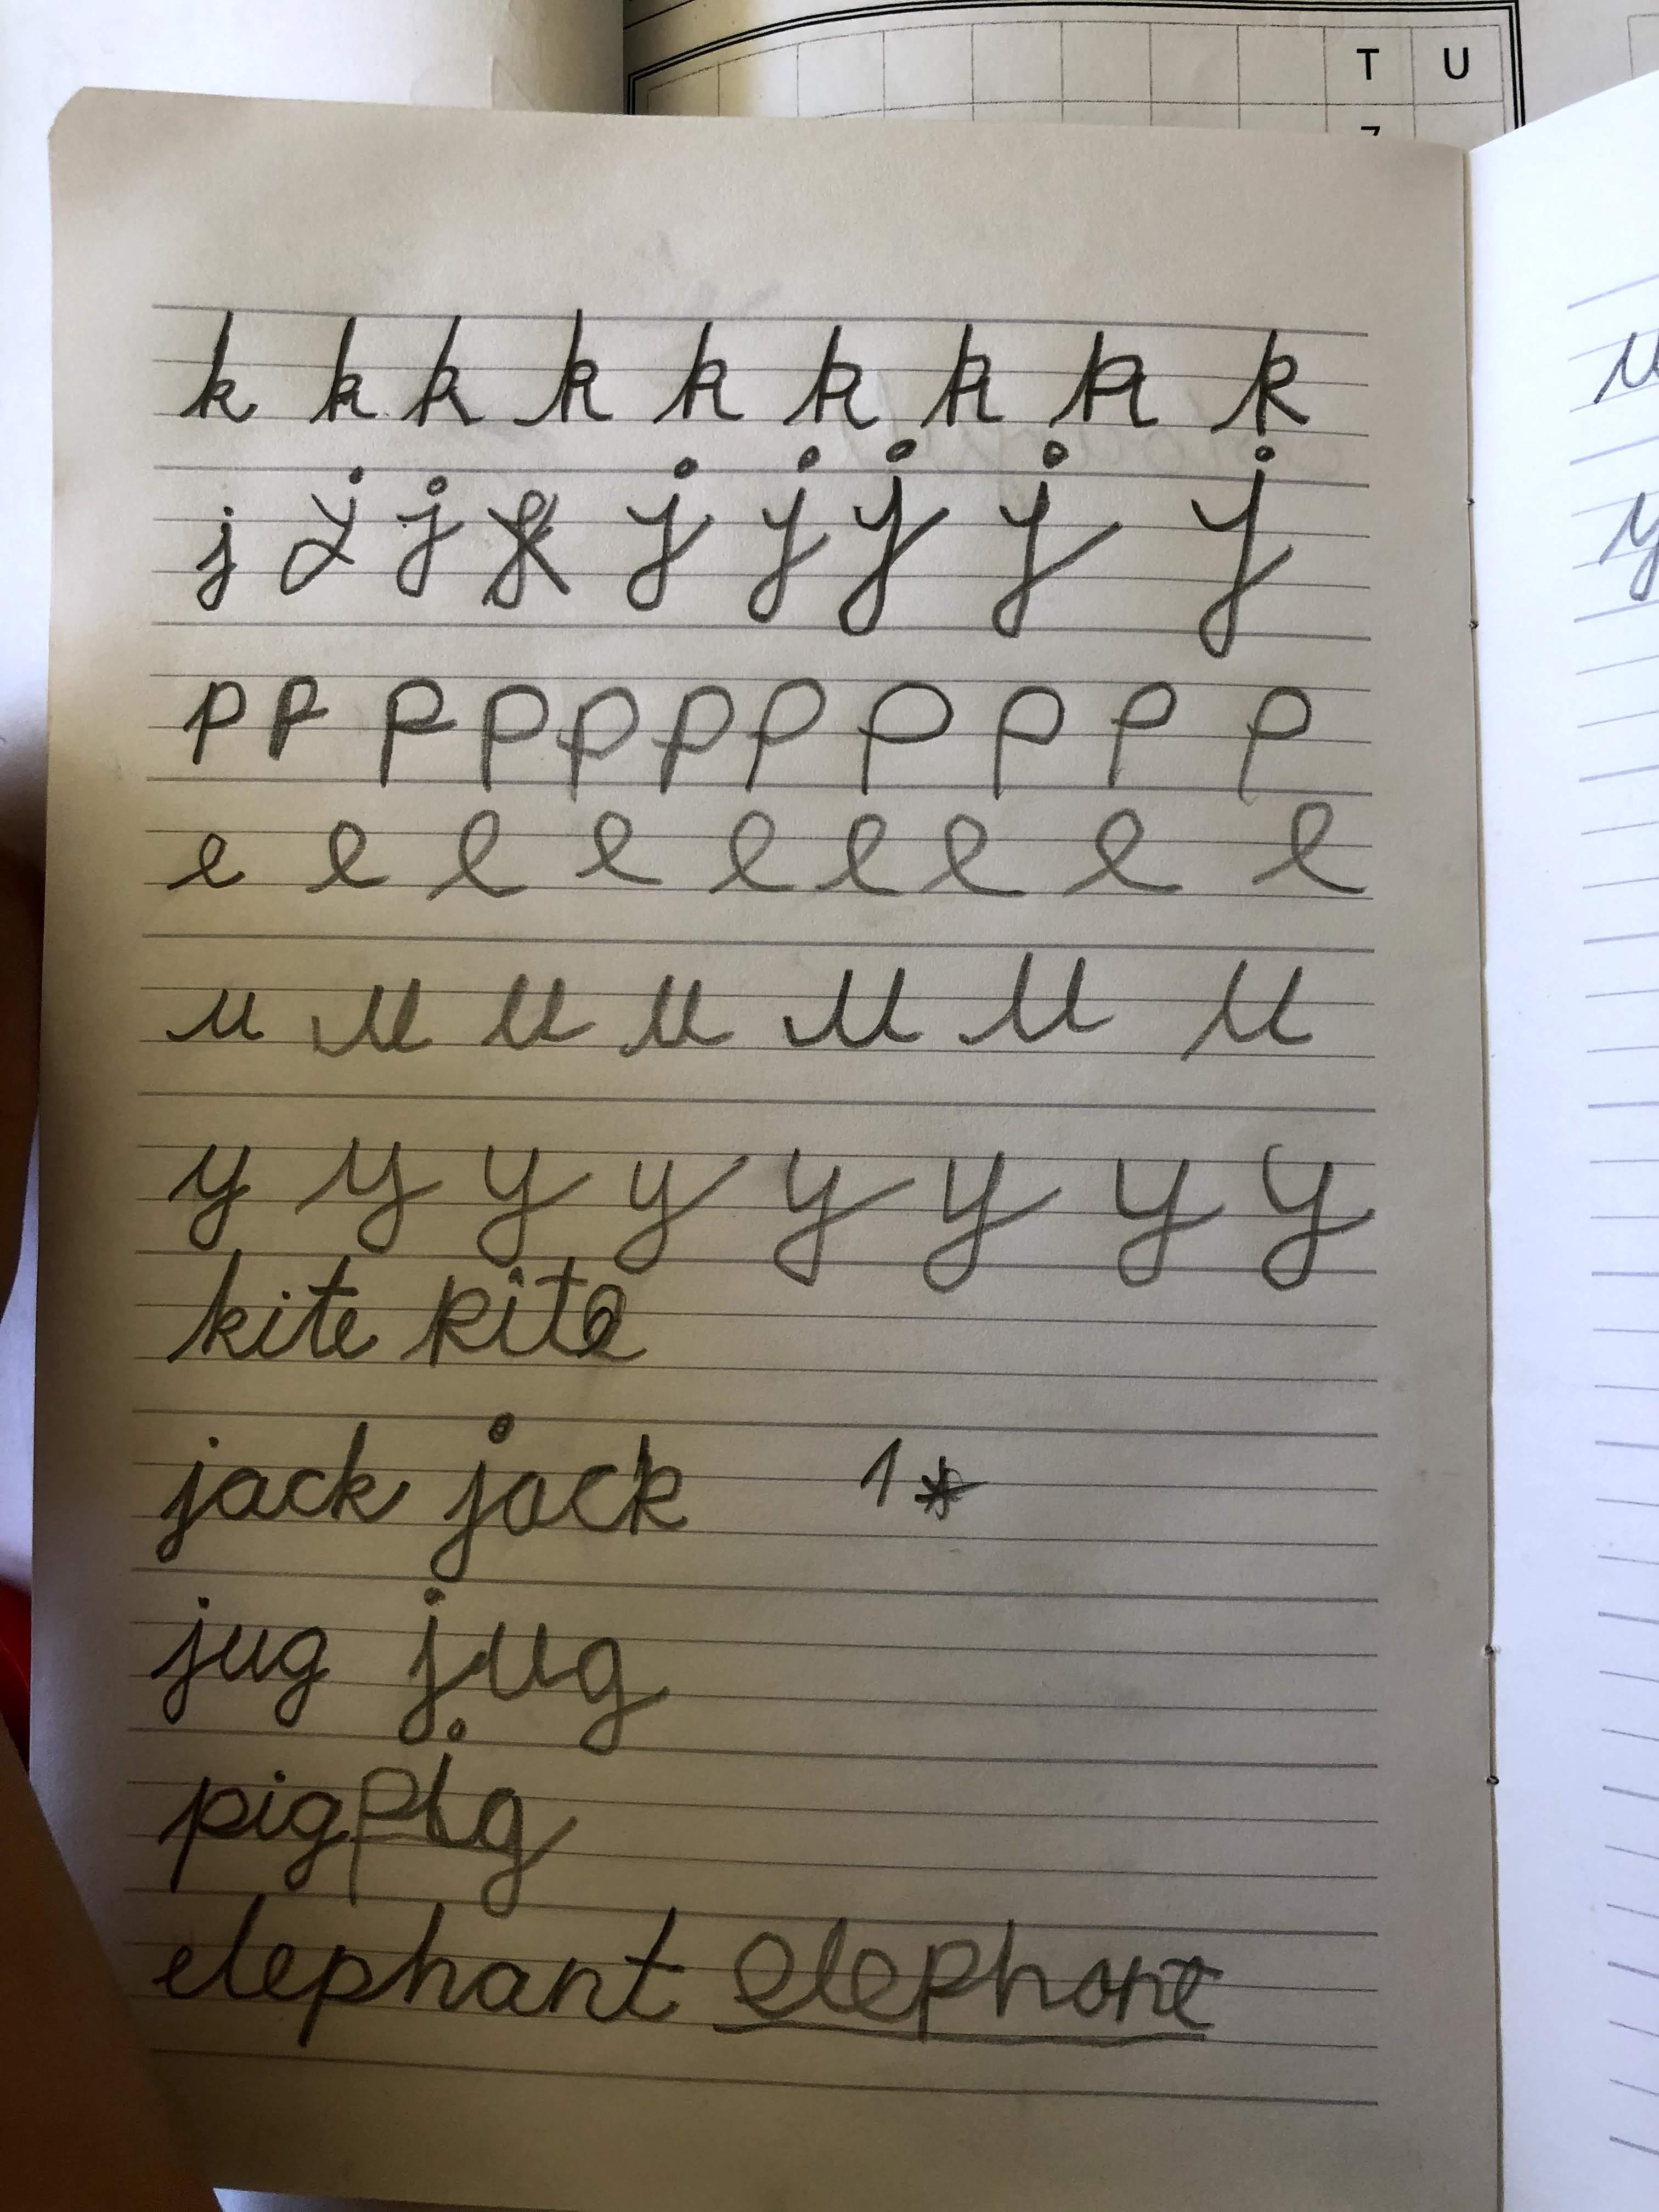 T U
7
k k k k k k k k k
j j j j j j j j
p p p p p p p p p p p
e e e e e e e e e
u u u u u u u
y y y y y y y y
kite kite
jack jack 1
jug jug
pig pig
elephant elephant
u
y